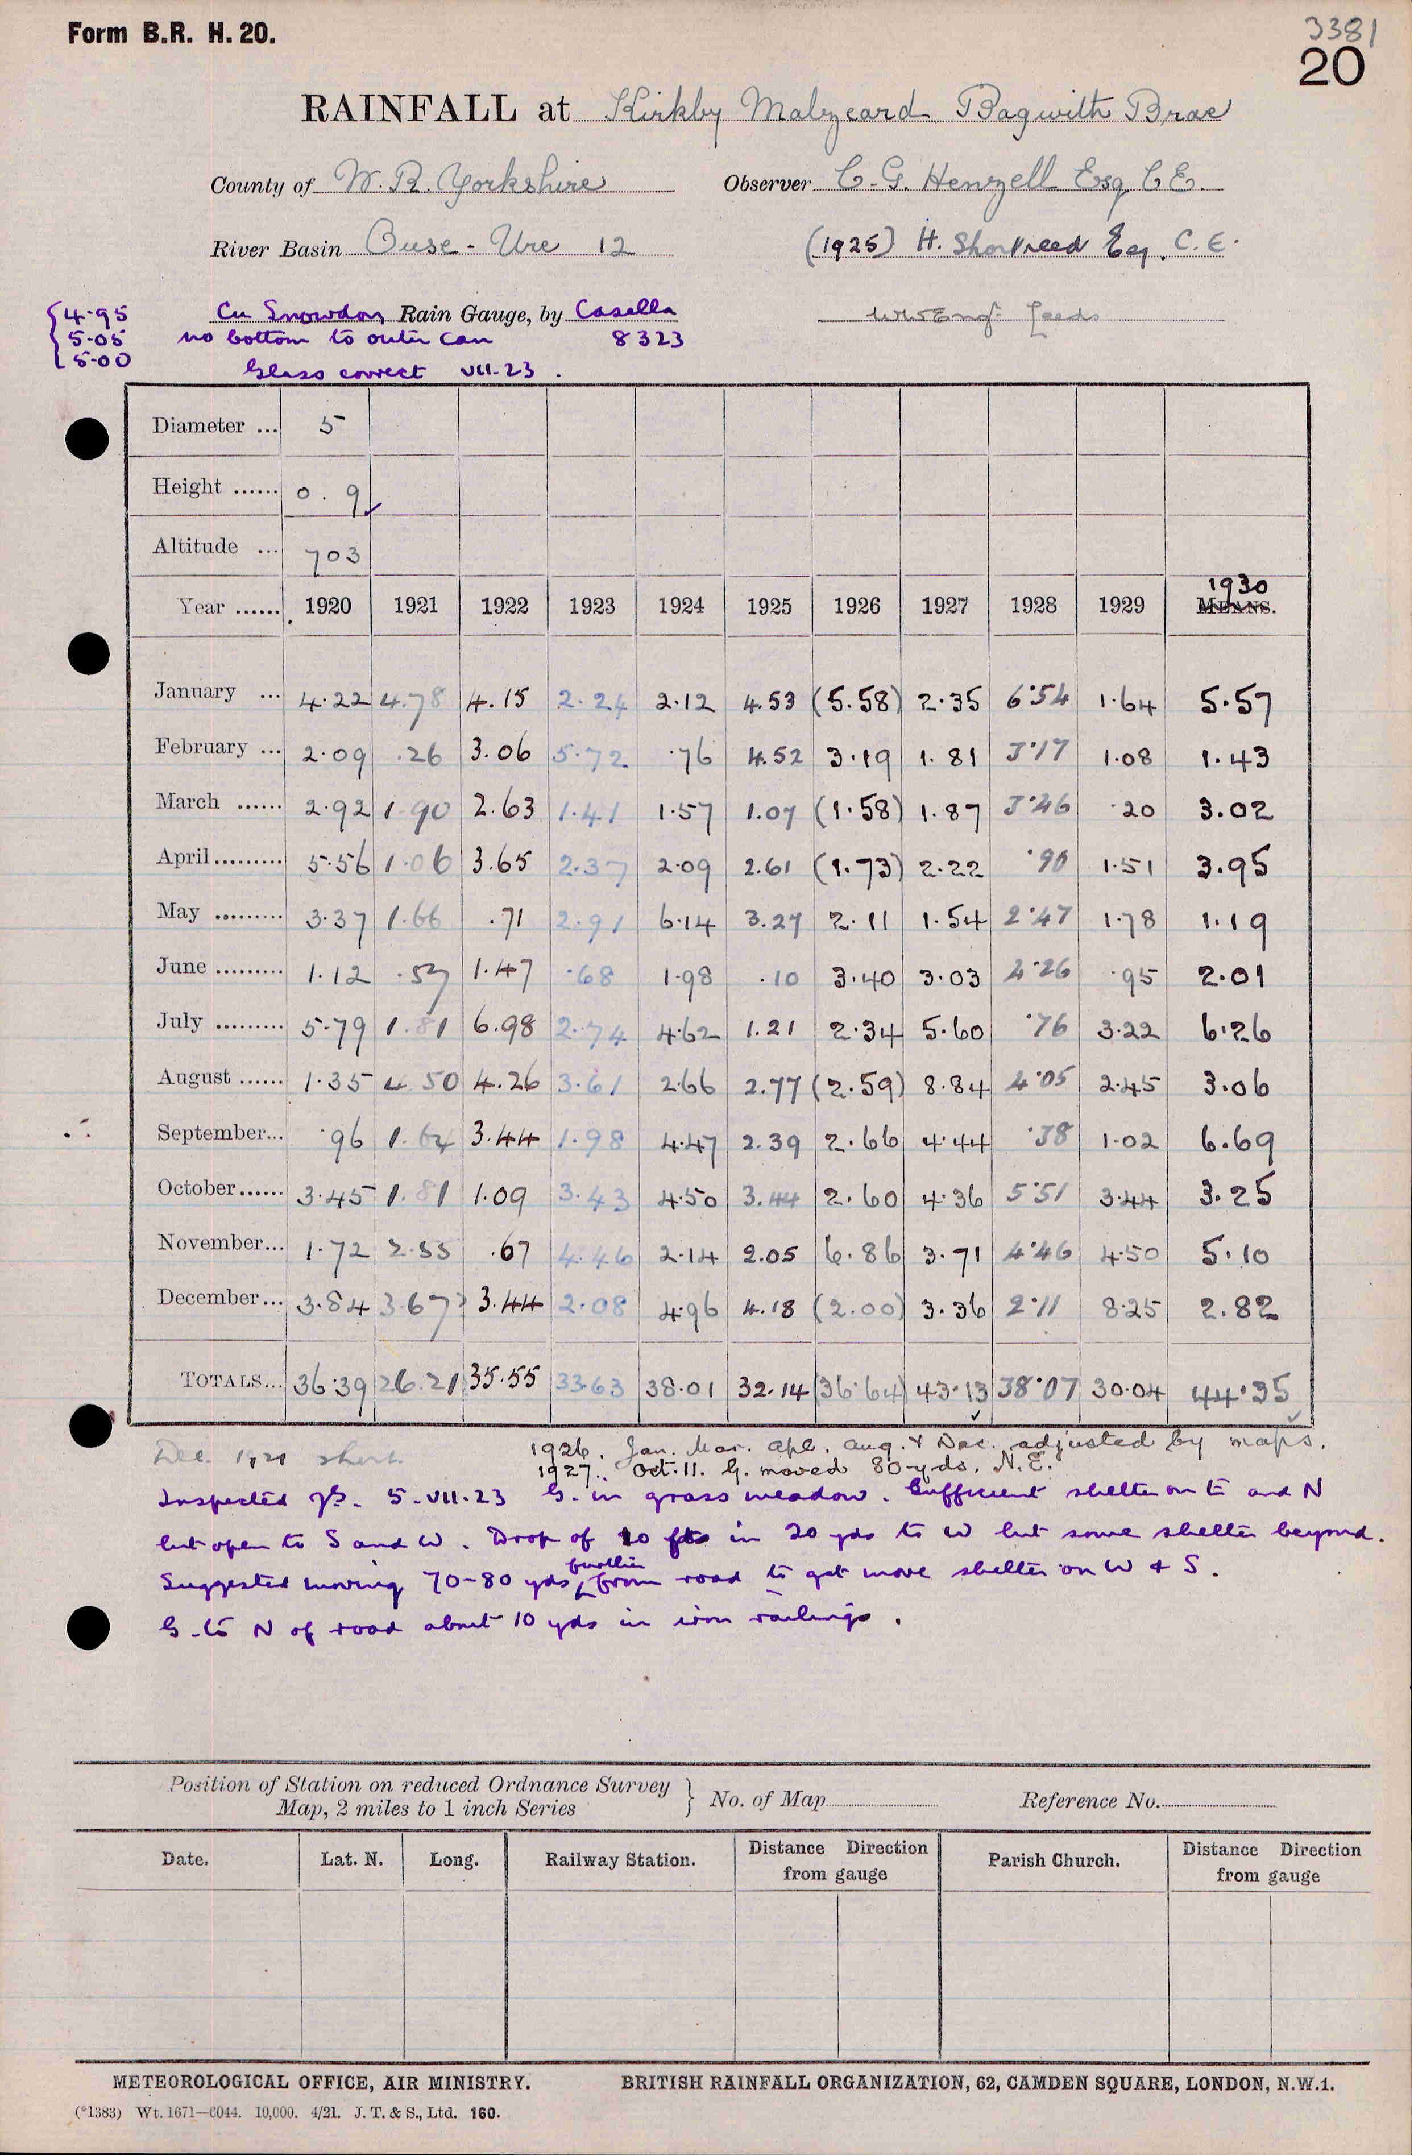 Form B.R. H. 20.
3381
20
RAINFALL at Kirkby Malzeard Bagwith Brae
County of W. R. Yorkshire Observer C. G. Henzell Esq C E.
River Basin Ouse - Ure 12 (1925) H. Shortreed Esq. C. E.
{4.95 Cu Snowdon Rain Gauge, by Casella Leeds
5.05 no bottom to outer can 8323
5.00 Glass correct VII.23.
Diameter ... 5
Height ...... 0. 9
Altitude ... 703
1930
Year ...... 1920 1921 1922 1923 1924 1925 1926 1927 1928 1929 MEANS.
January ... 4.22 4.78 4.15 2.24 2.12 4.53 (5.58) 2.35 6.54 1.64 5.57
February ... 2.09 .26 3.06 5.72 .76 4.52 3.19 1.81 3.17 1.08 1.43
March ...... 2.92 1.90 2.63 1.41 1.57 1.07 (1.58) 1.87 3.46 .20 3.02
April......... 5.56 1.06 3.65 2.37 2.09 2.61 (1.73) 2.22 .90 1.51 3.95
May ......... 3.37 1.66 .71 2.91 6.14 3.27 2.11 1.54 2.47 1.78 1.19
June ......... 1.12 .57 1.47 .68 1.98 .10 3.40 3.03 4.26 .95 2.01
July ......... 5.79 1.81 6.98 2.74 4.62 1.21 2.34 5.60 .76 3.22 6.26
August ...... 1.35 4.50 4.26 3.61 2.66 2.77 (2.59) 8.84 4.05 2.45 3.06
September... .96 1.64 3.44 1.98 4.47 2.39 2.66 4.44 .38 1.02 6.69
October...... 3.45 1.81 1.09 3.43 4.50 3.44 2.60 4.36 5.51 3.44 3.25
November... 1.72 2.55 .67 4.46 2.14 2.05 6.86 3.71 4.46 4.50 5.10
December... 3.84 3.67? 3.44 2.08 4.96 4.18 (2.00) 3.36 2.11 8.25 2.82
TOTALS... 36.39 26.21 35.55 33.63 38.01 32.14 (36.64) 43.13 38.07 30.04 44.35
Dec. 1921 short. 1926. Jan. Mar. Apl. Aug. & Dec. adjusted by maps.
1927. Oct. 11. G. moved 80 yds. N.E.
Inspected 5.VII.23 G. in grass meadow. Sufficient shelter on E and N
but open to S and W. Drop of 10 fts in 20 yds to W but some shelter beyond.
Suggested moving 70-80 yds further from road to get more shelter on W & S.
G. to N of road about 10 yds in iron railings.
Position of Station on reduced Ordnance Survey } No. of Map Reference No.
Map, 2 miles to 1 inch Series
Date. Lat. N. Long. Railway Station. Distance Direction Parish Church. Distance Direction
from gauge from gauge
METEOROLOGICAL OFFICE, AIR MINISTRY. BRITISH RAINFALL ORGANIZATION, 62, CAMDEN SQUARE, LONDON, N.W.1.
(*1383) Wt. 1671—6044. 10,000. 4/21. J. T. & S., Ltd. 160.